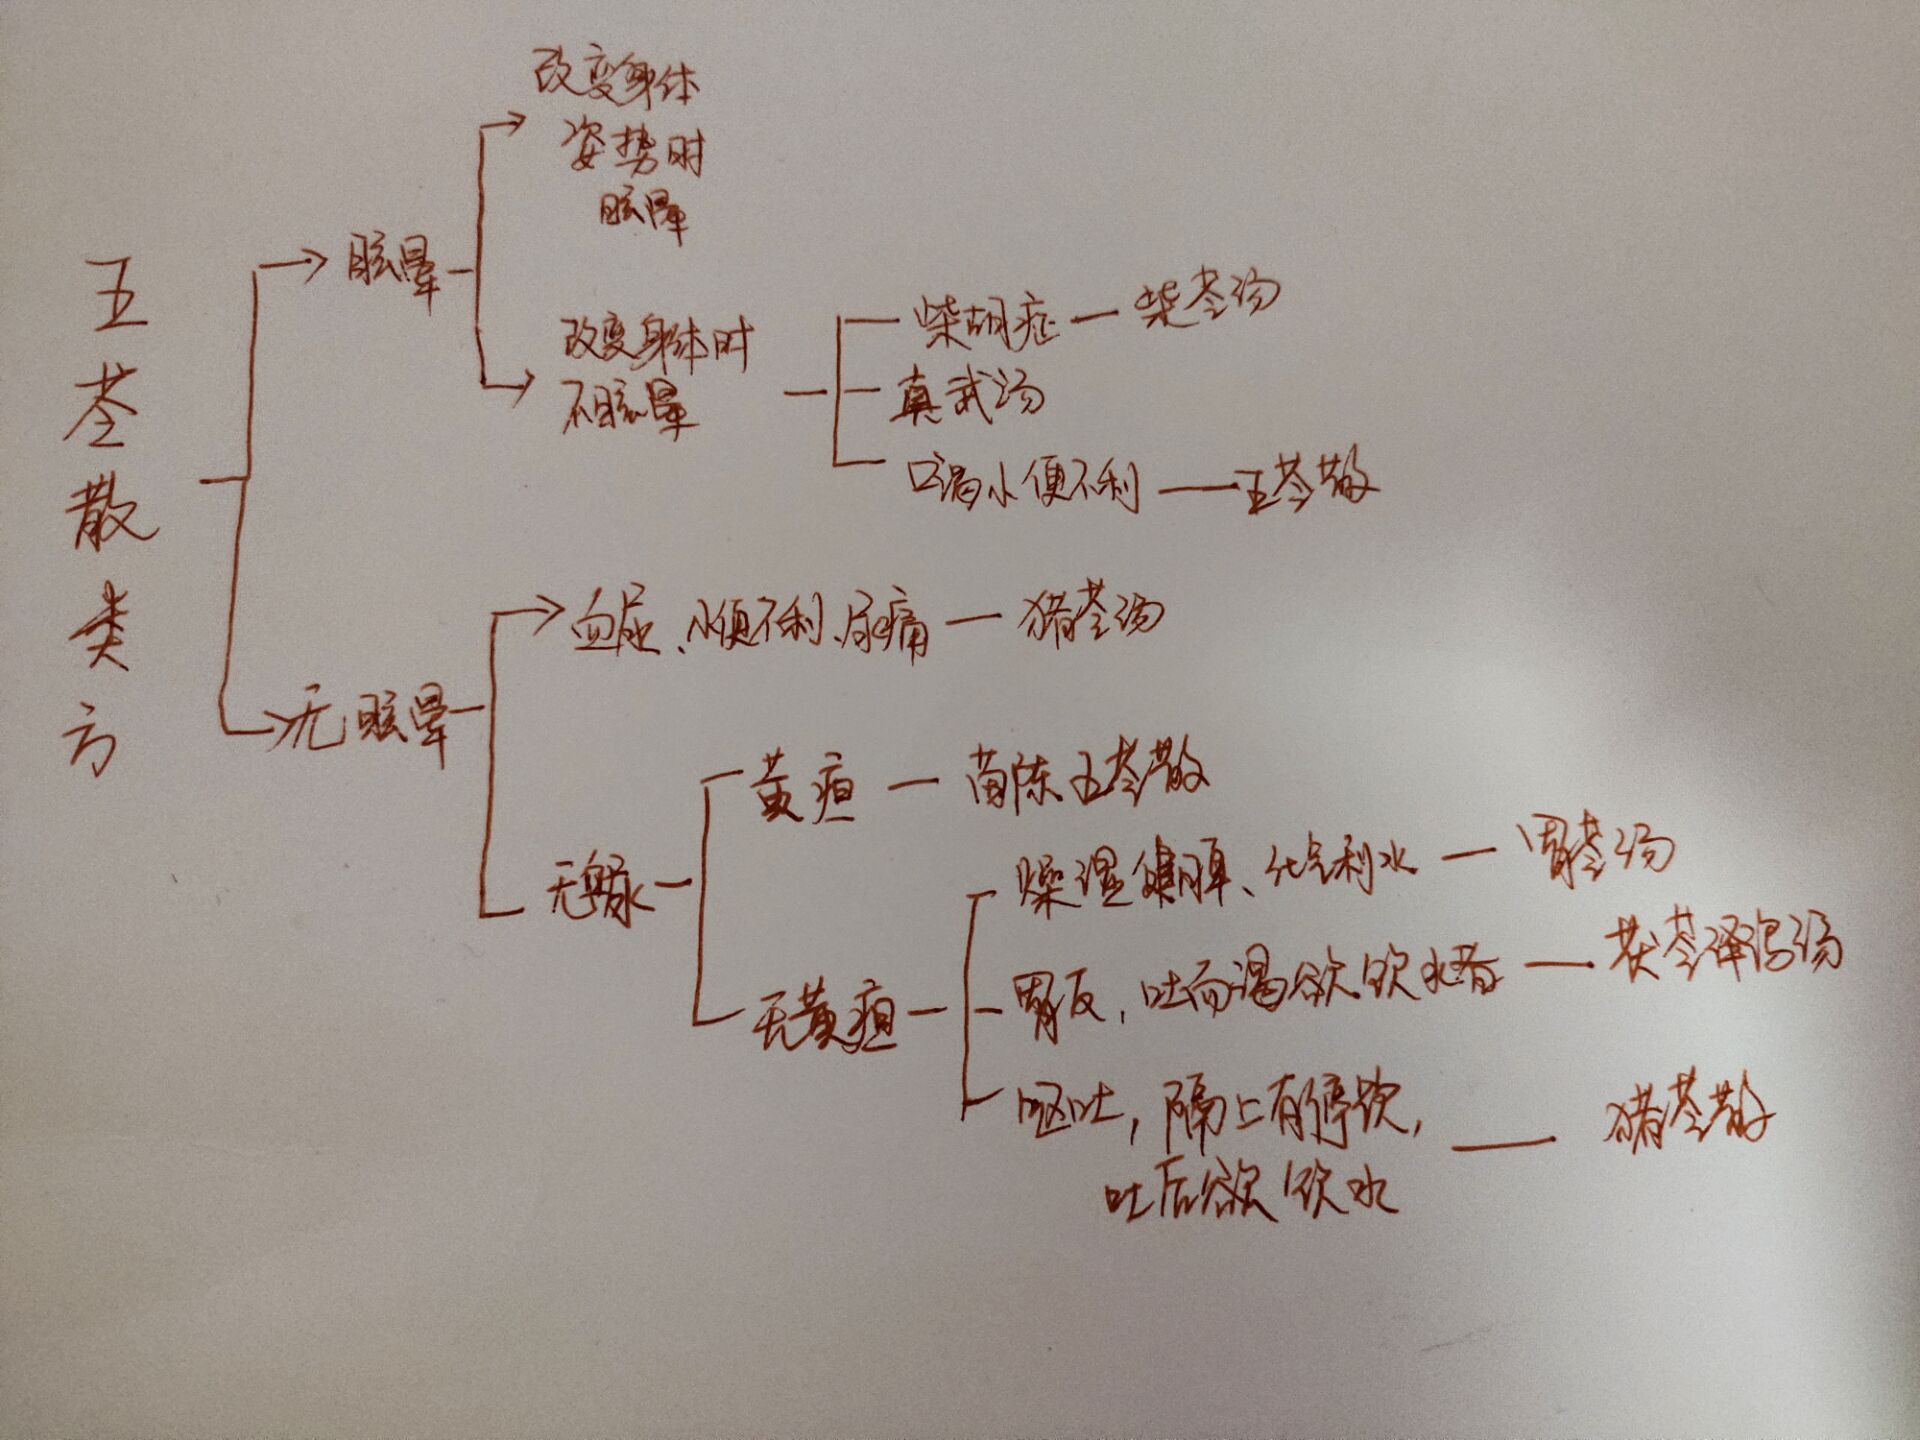 五苓散类方
眩晕
改变身体
姿势时
眩晕
改变身体时
不眩晕
柴胡症 — 柴苓汤
真武汤
口渴小便不利 — 五苓散
无眩晕
血尿、小便不利、尿痛 — 猪苓汤
无尿
黄疸 — 茵陈五苓散
无黄疸
燥湿健脾、化气利水 — 胃苓汤
胃反,吐而渴欲饮水者 — 茯苓泽泻汤
呕吐,隔上有停饮,
吐后欲饮水 — 猪苓散